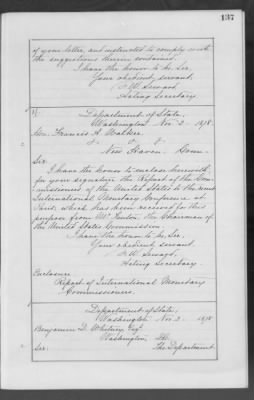 137
of your letter, and instructed to comply with
the suggestions therein contained.
I have the honor to be, Sir,
Your obedient servant,
F. W. Seward
Acting Secretary
Department of State,
Washington, Nov. 2 1878.
Hon. Francis A. Walker
New Haven. Conn
Sir:
I have the honor to enclose herewith
for your signature, the Report of the Com-
missioners of the United States to the recent
International Monetary Conference at
Paris, which has been received for this
purpose from Mr. Fenton, the Chairman of
the United States Commission.
I have the honor to be, Sir,
Your obedient servant
F. W. Seward.
Acting Secretary.
Enclosure
Report of International Monetary
Commissioners.
Department of State,
Washington Nov 2 1878
Benjamin D. Whitney, Esqr.
Washington, D.C.
Sir: The Department